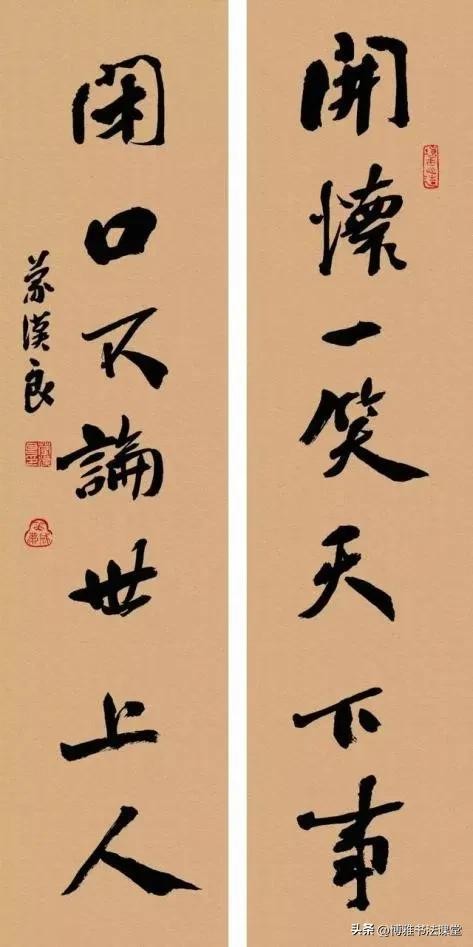 開懷一笑天下事
閑口不論世上人
蒙漢良
头条 @博雅书法课堂